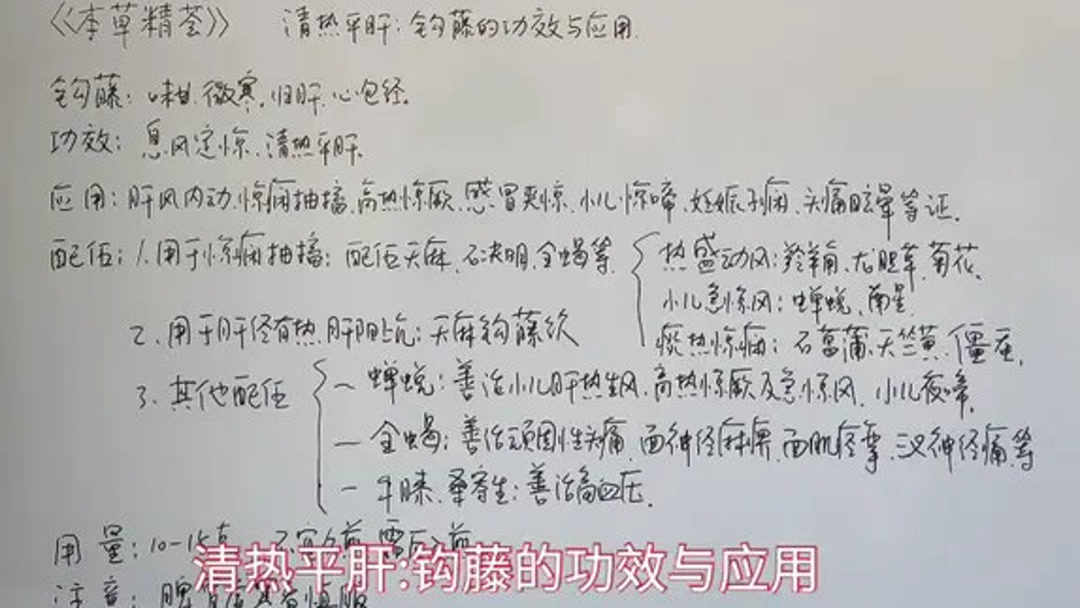 《本草精荟》 清热平肝:钩藤的功效与应用
钩藤:味甘.微寒.归肝.心包经.
功效:息风定惊.清热平肝
应用:肝风内动.惊痫抽搐.高热惊厥.感冒夹惊.小儿惊啼.妊娠子痫.头痛眩晕等证.
配伍:1.用于惊痫抽搐:配伍天麻.石决明.全蝎等
热盛动风:羚羊角.龙胆草.菊花.
小儿急惊风:蝉蜕.南星
痰热惊痫:石菖蒲.天竺黄.僵蚕.
2.用于肝经有热.肝阳上亢:天麻钩藤饮
3.其他配伍
一 蝉蜕:善治小儿肝热生风.高热惊厥及急惊风.小儿夜啼.
一 全蝎:善治顽固性头痛.面神经麻痹.面肌痉挛.三叉神经痛等
一 牛膝.桑寄生:善治高血压.
用量:10-15克 不宜久煎
注意:脾胃虚寒者慎服
清热平肝:钩藤的功效与应用